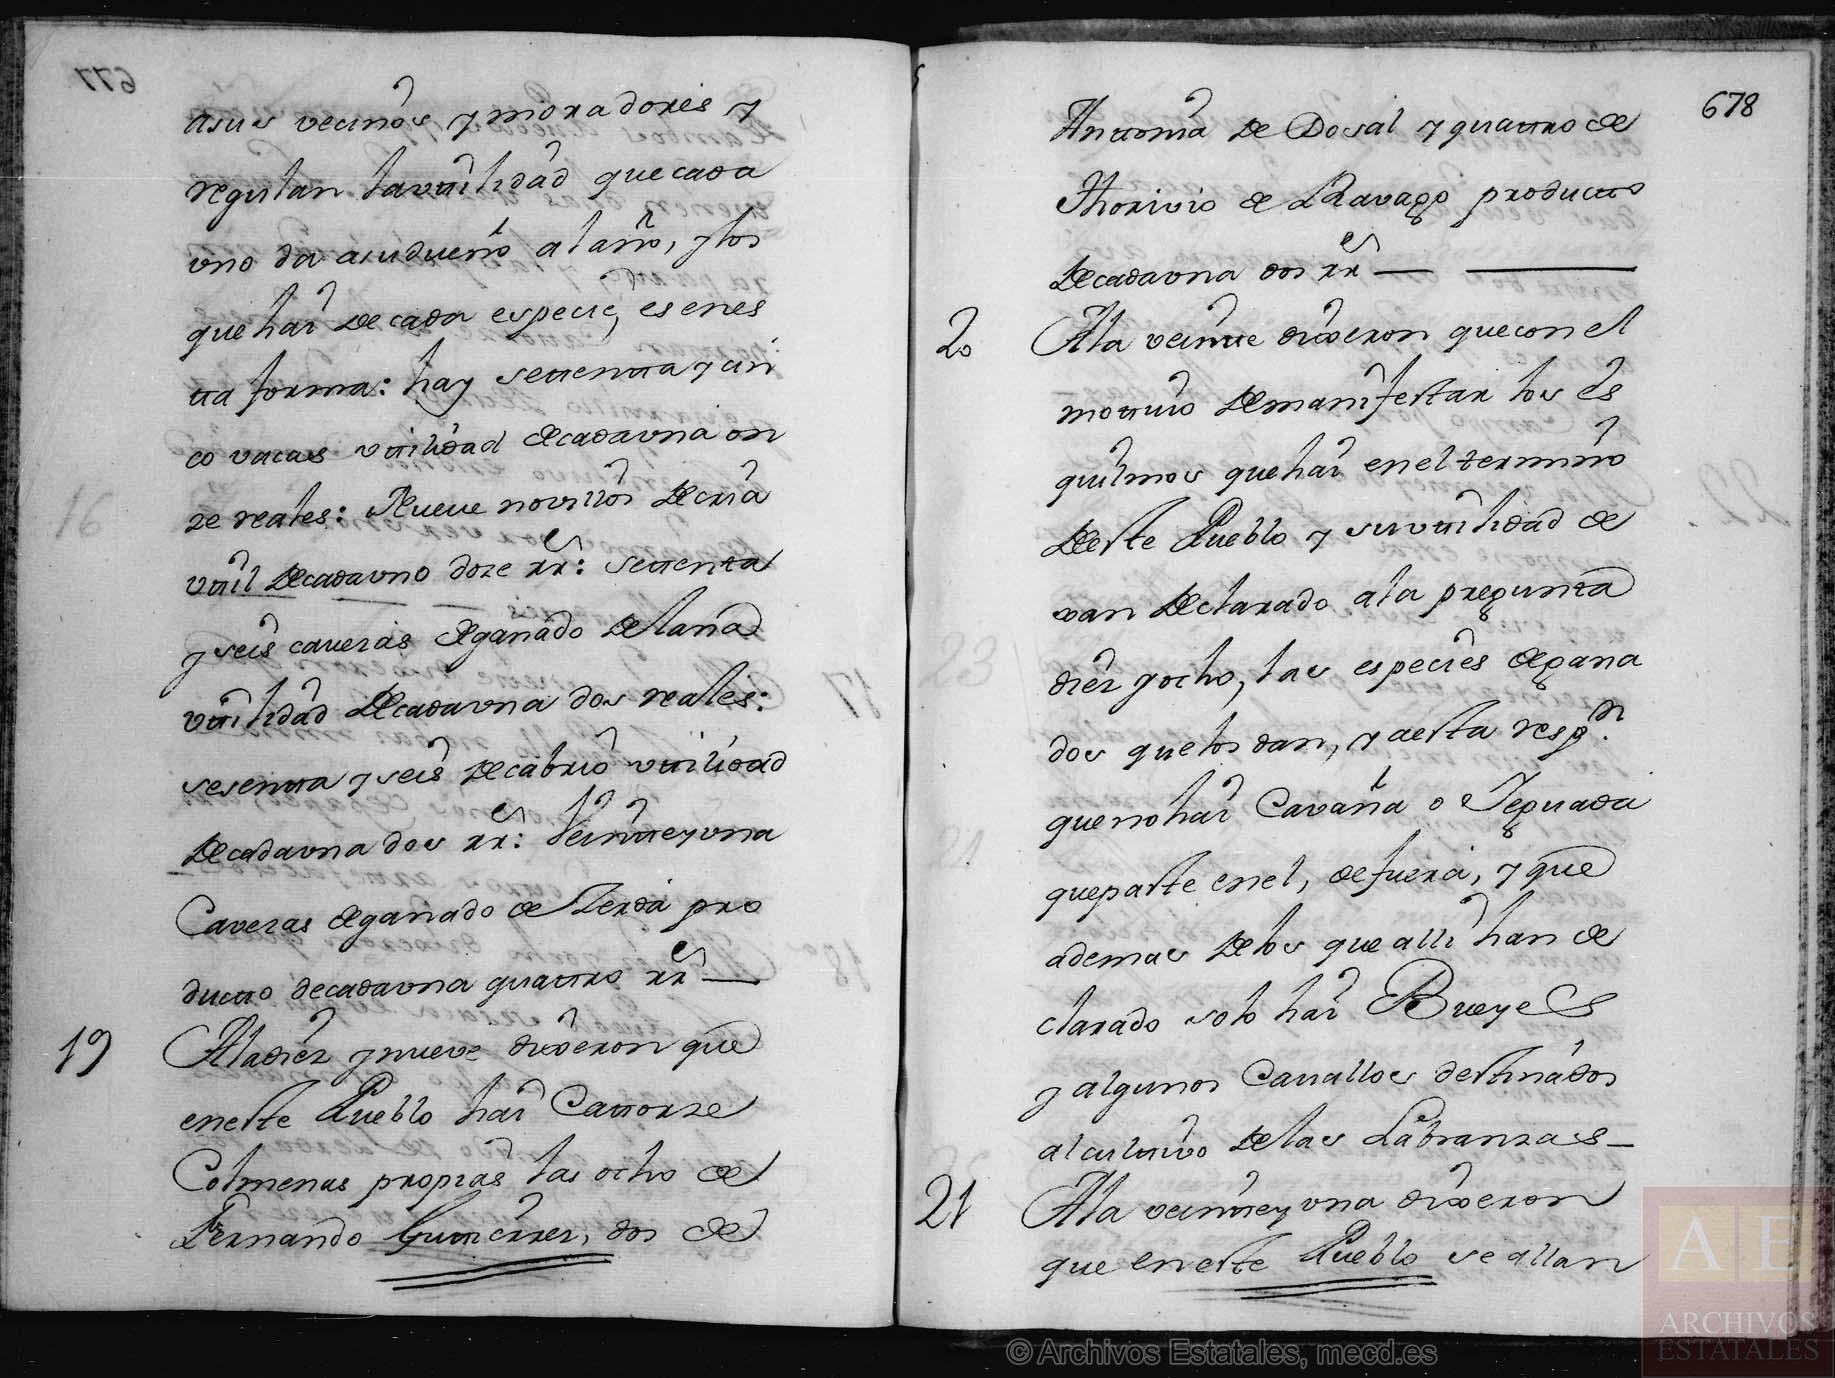 asus vecinos y moradores y
regulan la vttilidad que cada
vno da a su dueño al año, y los
que hai de cada especie, es en es
tta forma: hay settentta y cin
co vacas vttilidad de cada vna on
ze reales: Nueve novillos de cria
vttil de cada vno doze rr.s: settenta
y seis cavezas de ganado de lana
vttilidad de cada vna dos reales:
sesentta y seis de cabrio vttilidad
de cada vna dos rr.s: Veintte y vna
Cavezas de ganado de Zerda pro
ductto de cada vna quattro rr.s
19 A la diez y nueve dixeron que
en este Pueblo hai Cattorze
Colmenas propias las ocho de
Fernando Guttierrez, dos de
678
Anttonia de Dosal y quattro de
Thorivio de Ravago productto
de cada vna dos rr.s
20 A la veintte dixeron que con el
mottivo de manifestar los es
quilmos que hai en el termino
de este Pueblo y su vttilidad de
van declarado a la pregunta
diez y ocho, las especies de gana
dos que los dan, y a esta resp.den
que no hai Cavaña o Yeguada
que paste en el, de fuera, y que
ademas de los que alli han de
clarado solo hai Bueyes
y algunos Cavallos destinados
al culttivo de las Labranzas
21 A la veintte y vna dixeron
que en este Pueblo se allan
© Archivos Estatales, mecd.es
AE
ARCHIVOS
ESTATALES